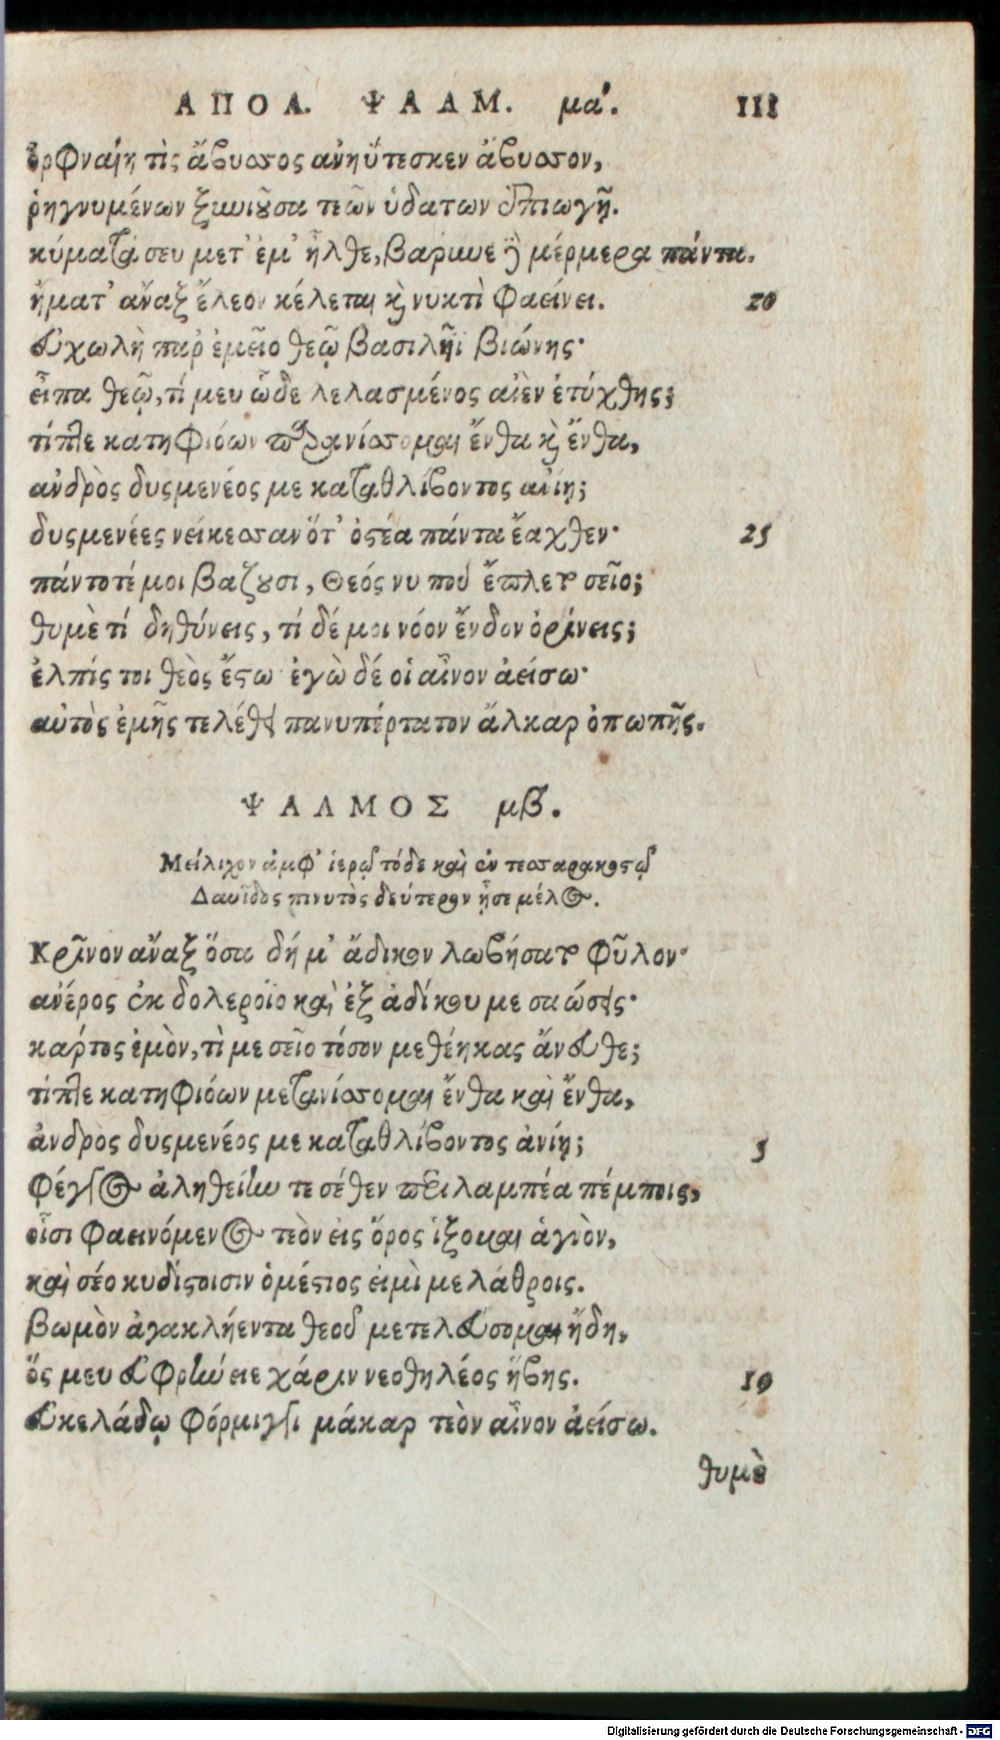 ΑΠΟΛ. ΨΑΛΜ. μα΄. 111
ὀρφναίη τὶς ἄβυσσος ἀνηΰτεσκεν ἄβυσσον,
ῥηγνυμένων ξυνιοῦσα τεῶν ὑδάτων ἐπιωγῇ.
κύματά σευ μετ' ἐμ' ἦλθε, βάρυνε δὲ μέρμερα πάντα.
ἤματ' ἄναξ ἔλεον κέλεται καὶ νυκτὶ φαείνει. 20
εὐχωλὴ παρ' ἐμεῖο θεῷ βασιλῆϊ βιώνης·
εἶπα θεῷ, τί μευ ὧδε λελασμένος αἰὲν ἐτύχθης;
τίπτε κατηφιόων παρανίσσομαι ἔνθα καὶ ἔνθα,
ἀνδρὸς δυςμενέος με καταθλίβοντος ἀνίῃ;
δυςμενέες νείκεσσαν ὅτ' ὀστέα πάντα ἔαχθεν· 25
πάντοτέ μοι βάζουσι, Θεός νυ ποῦ ἔπλετο σεῖο;
θυμὲ τί δηθύνεις, τί δέ μοι νόον ἔνδον ὀρίνεις;
ἐλπίς τοι θεὸς ἔστω ἐγὼ δέ οἱ αἶνον ἀείσω·
αὐτὸς ἐμῆς τελέθει πανυπέρτατον ἄλκαρ ὀπωπῆς.
ΨΑΛΜΟΣ μβ΄.
Μείλιχον ἀμφ' ἱερῷ τόδε καὶ ἐν τεσσαρακοστῷ
Δαυΐδος πινυτὸς δεύτερον ᾖσε μέλος.
Κρῖνον ἄναξ ὅσα δή μ' ἄδικον λωβήσατο φῦλον·
ἀνέρος ἐκ δολεροῖο καὶ ἐξ ἀδίκου με σαώσεις·
κάρτος ἐμὸν, τὶ με σεῖο τόσον μεθέηκας ἄνευθε;
τίπτε κατηφιόων μετανίσσομαι ἔνθα καὶ ἔνθα,
ἀνδρὸς δυςμενέος με καταθλίβοντος ἀνίῃ; 5
φέγγος ἀληθείην τε σέθεν περιλαμπέα πέμποις,
οἷσι φαεινόμενος τεὸν εἰς ὄρος ἵξομαι ἁγιὸν,
καὶ σέο κυδίστοισιν ὁμέστιος εἰμὶ μελάθροις.
βωμὸν ἀγακλήεντα θεοῦ μετελεύσομαι ἤδη,
ὅς μευ εὐφρήνειε χάριν νεοθηλέος ἥβης. 10
εὐκελάδῳ φόρμιγγι μάκαρ τεὸν αἶνον ἀείσω.
θυμὲ
Digitalisierung gefördert durch die Deutsche Forschungsgemeinschaft - DFG